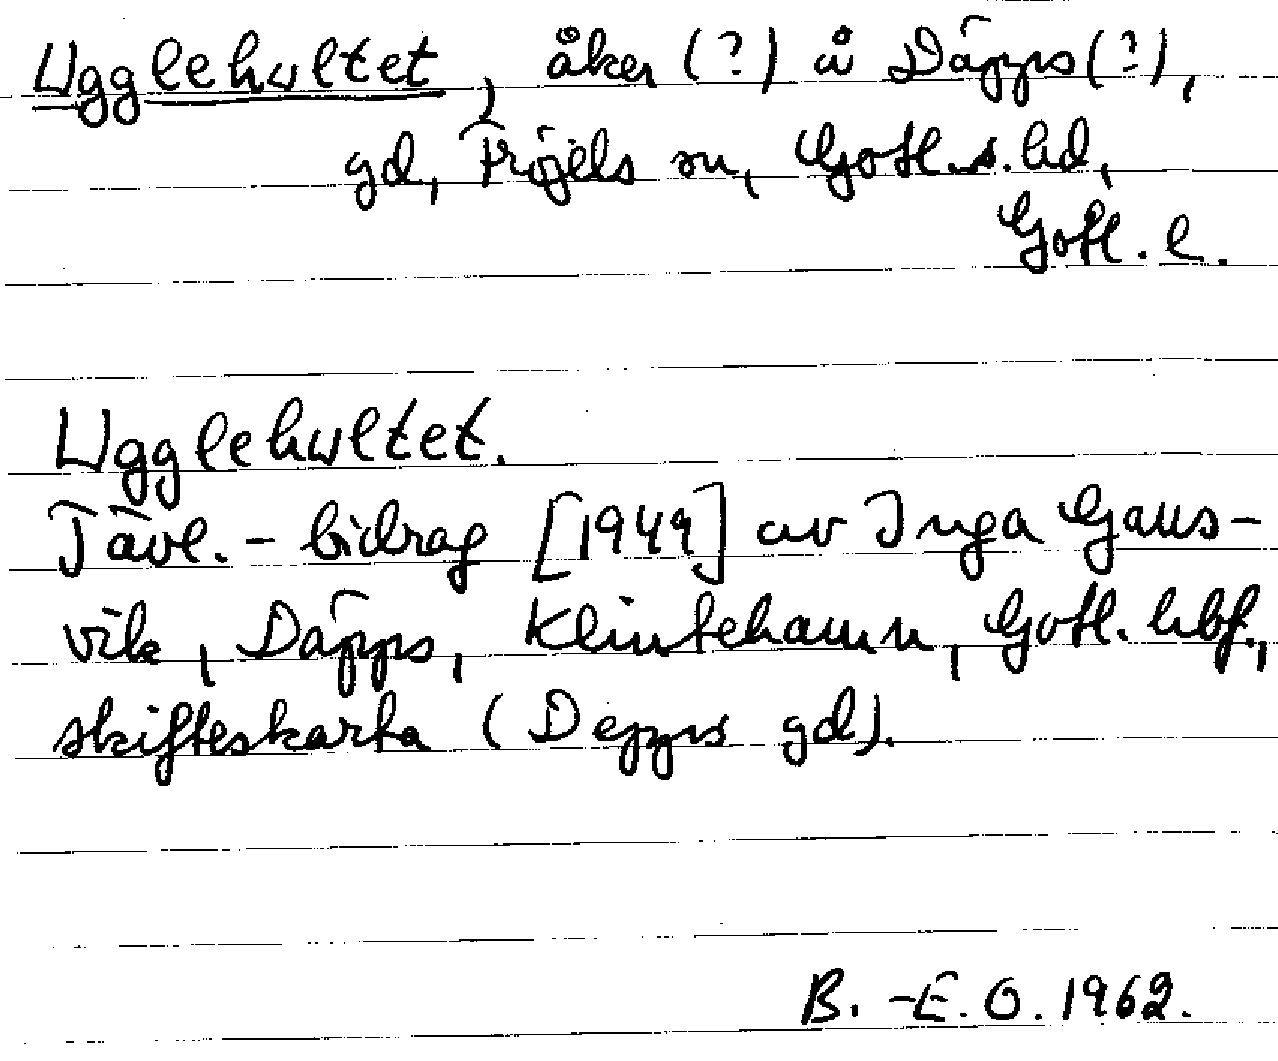 Ugglehultet, åker (?) å Däpps (?),
gd, Fröjels sn, Gotl. s. hd,
Gotl. l.
Ugglehultet.
Tävl.-bidrag [1949] av Inga Gans-
vik, Däpps, Klintehamn, Gotl. hbf.,
skifteskarta (Depps gd).
B.-E. O. 1962.